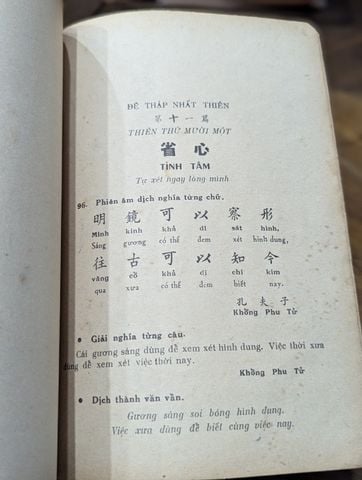 ĐỆ THẬP NHẤT THIÊN
第十一篇
THIÊN THỨ MƯỜI MỘT
省心
TỈNH TÂM
Tự xét ngay lòng mình
96. Phiên âm dịch nghĩa từng chữ.
明 鏡 可 以 察 形
Minh kính khả dĩ sát hình,
Sáng gương có thể đem xét hình dung,
往 古 可 以 知 今
vãng cổ khả dĩ chi kim
qua xưa có thể đem biết nay.
孔夫子
Khổng Phu Tử
● Giải nghĩa từng câu.
Cái gương sáng dùng để xem xét hình dung. Việc thời xưa
dùng để xem xét việc thời nay.
Khổng Phu Tử
● Dịch thành văn vần.
Gương sáng soi bóng hình dung.
Việc xưa dùng để biết cùng việc nay.